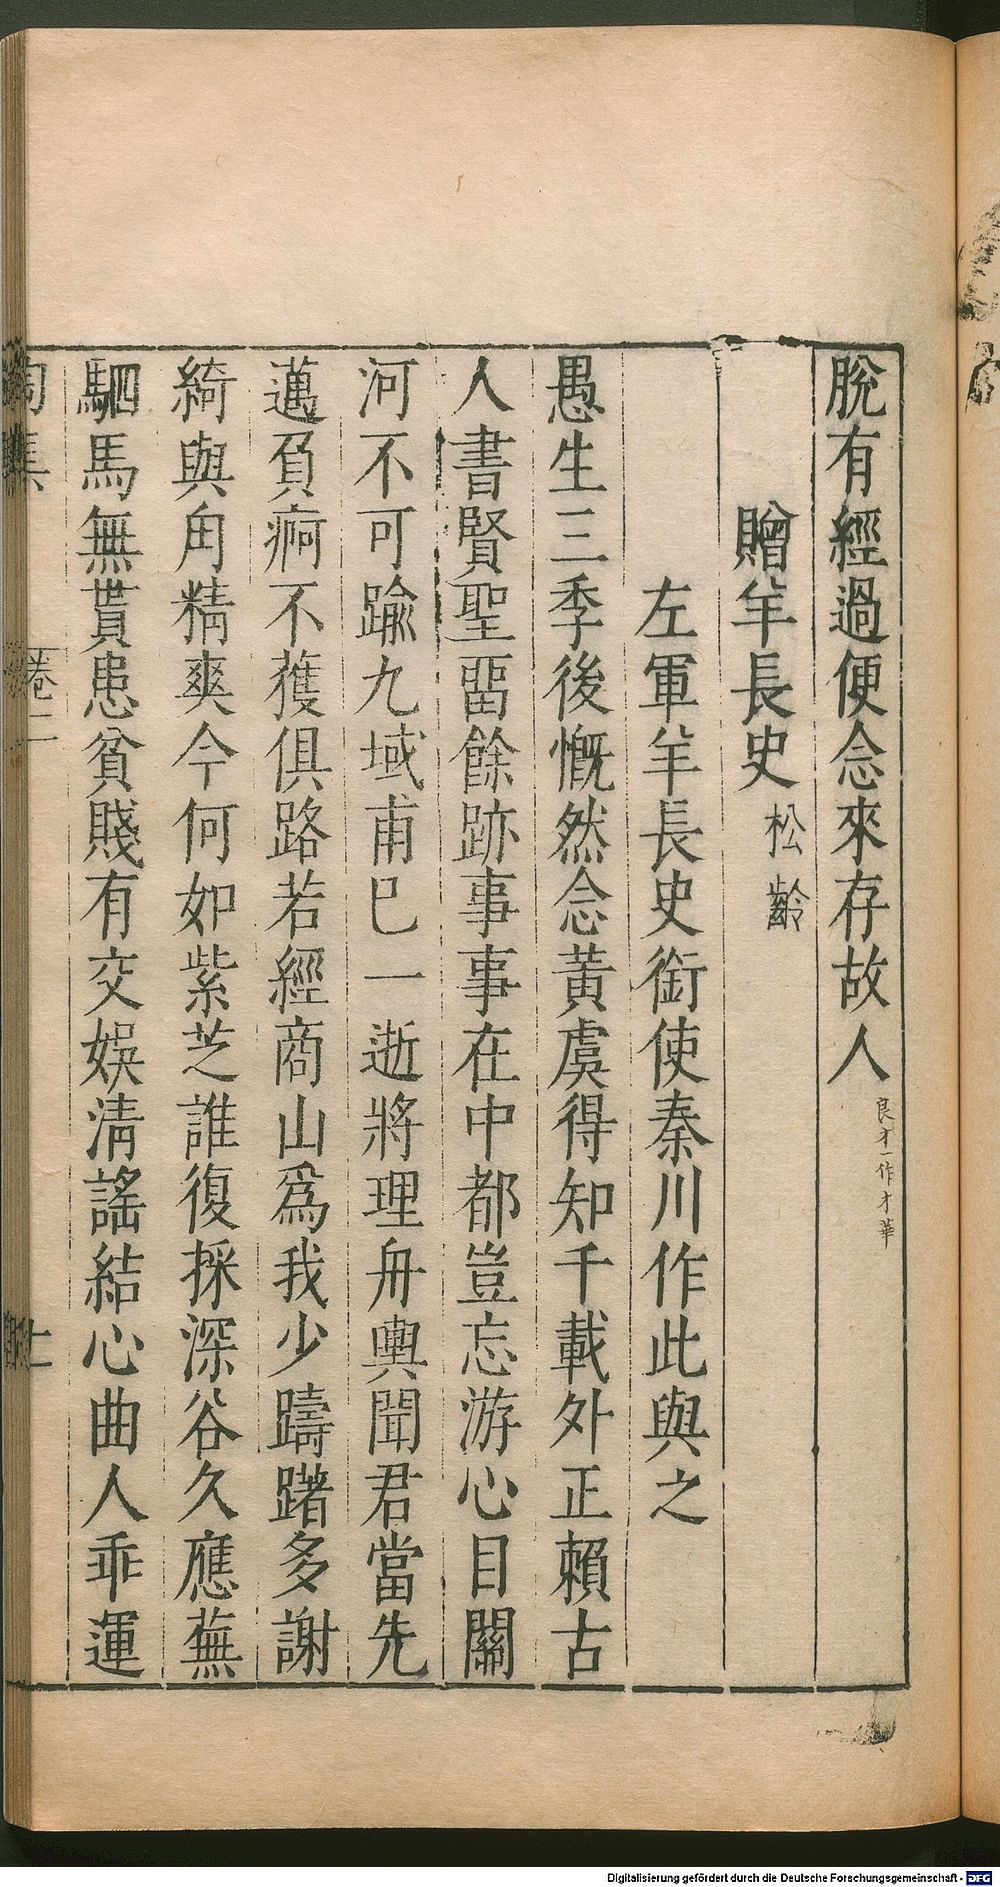 脫有經過便念來存故人
良才一作才華
贈羊長史
松齡
左軍羊長史銜使秦川作此與之
愚生三季後慨然念黃虞得知千載外正賴古
人書賢聖畱餘跡事事在中都豈忘游心目關
河不可踰九域甫巳一逝將理舟輿聞君當先
邁負痾不獲俱路若經商山爲我少躊躇多謝
綺與甪精爽今何如紫芝誰復採深谷久應蕪
駟馬無貰患貧賤有交娛淸謠結心曲人乖運
陶集
卷二
七
Digitalisierung gefördert durch die Deutsche Forschungsgemeinschaft - DFG